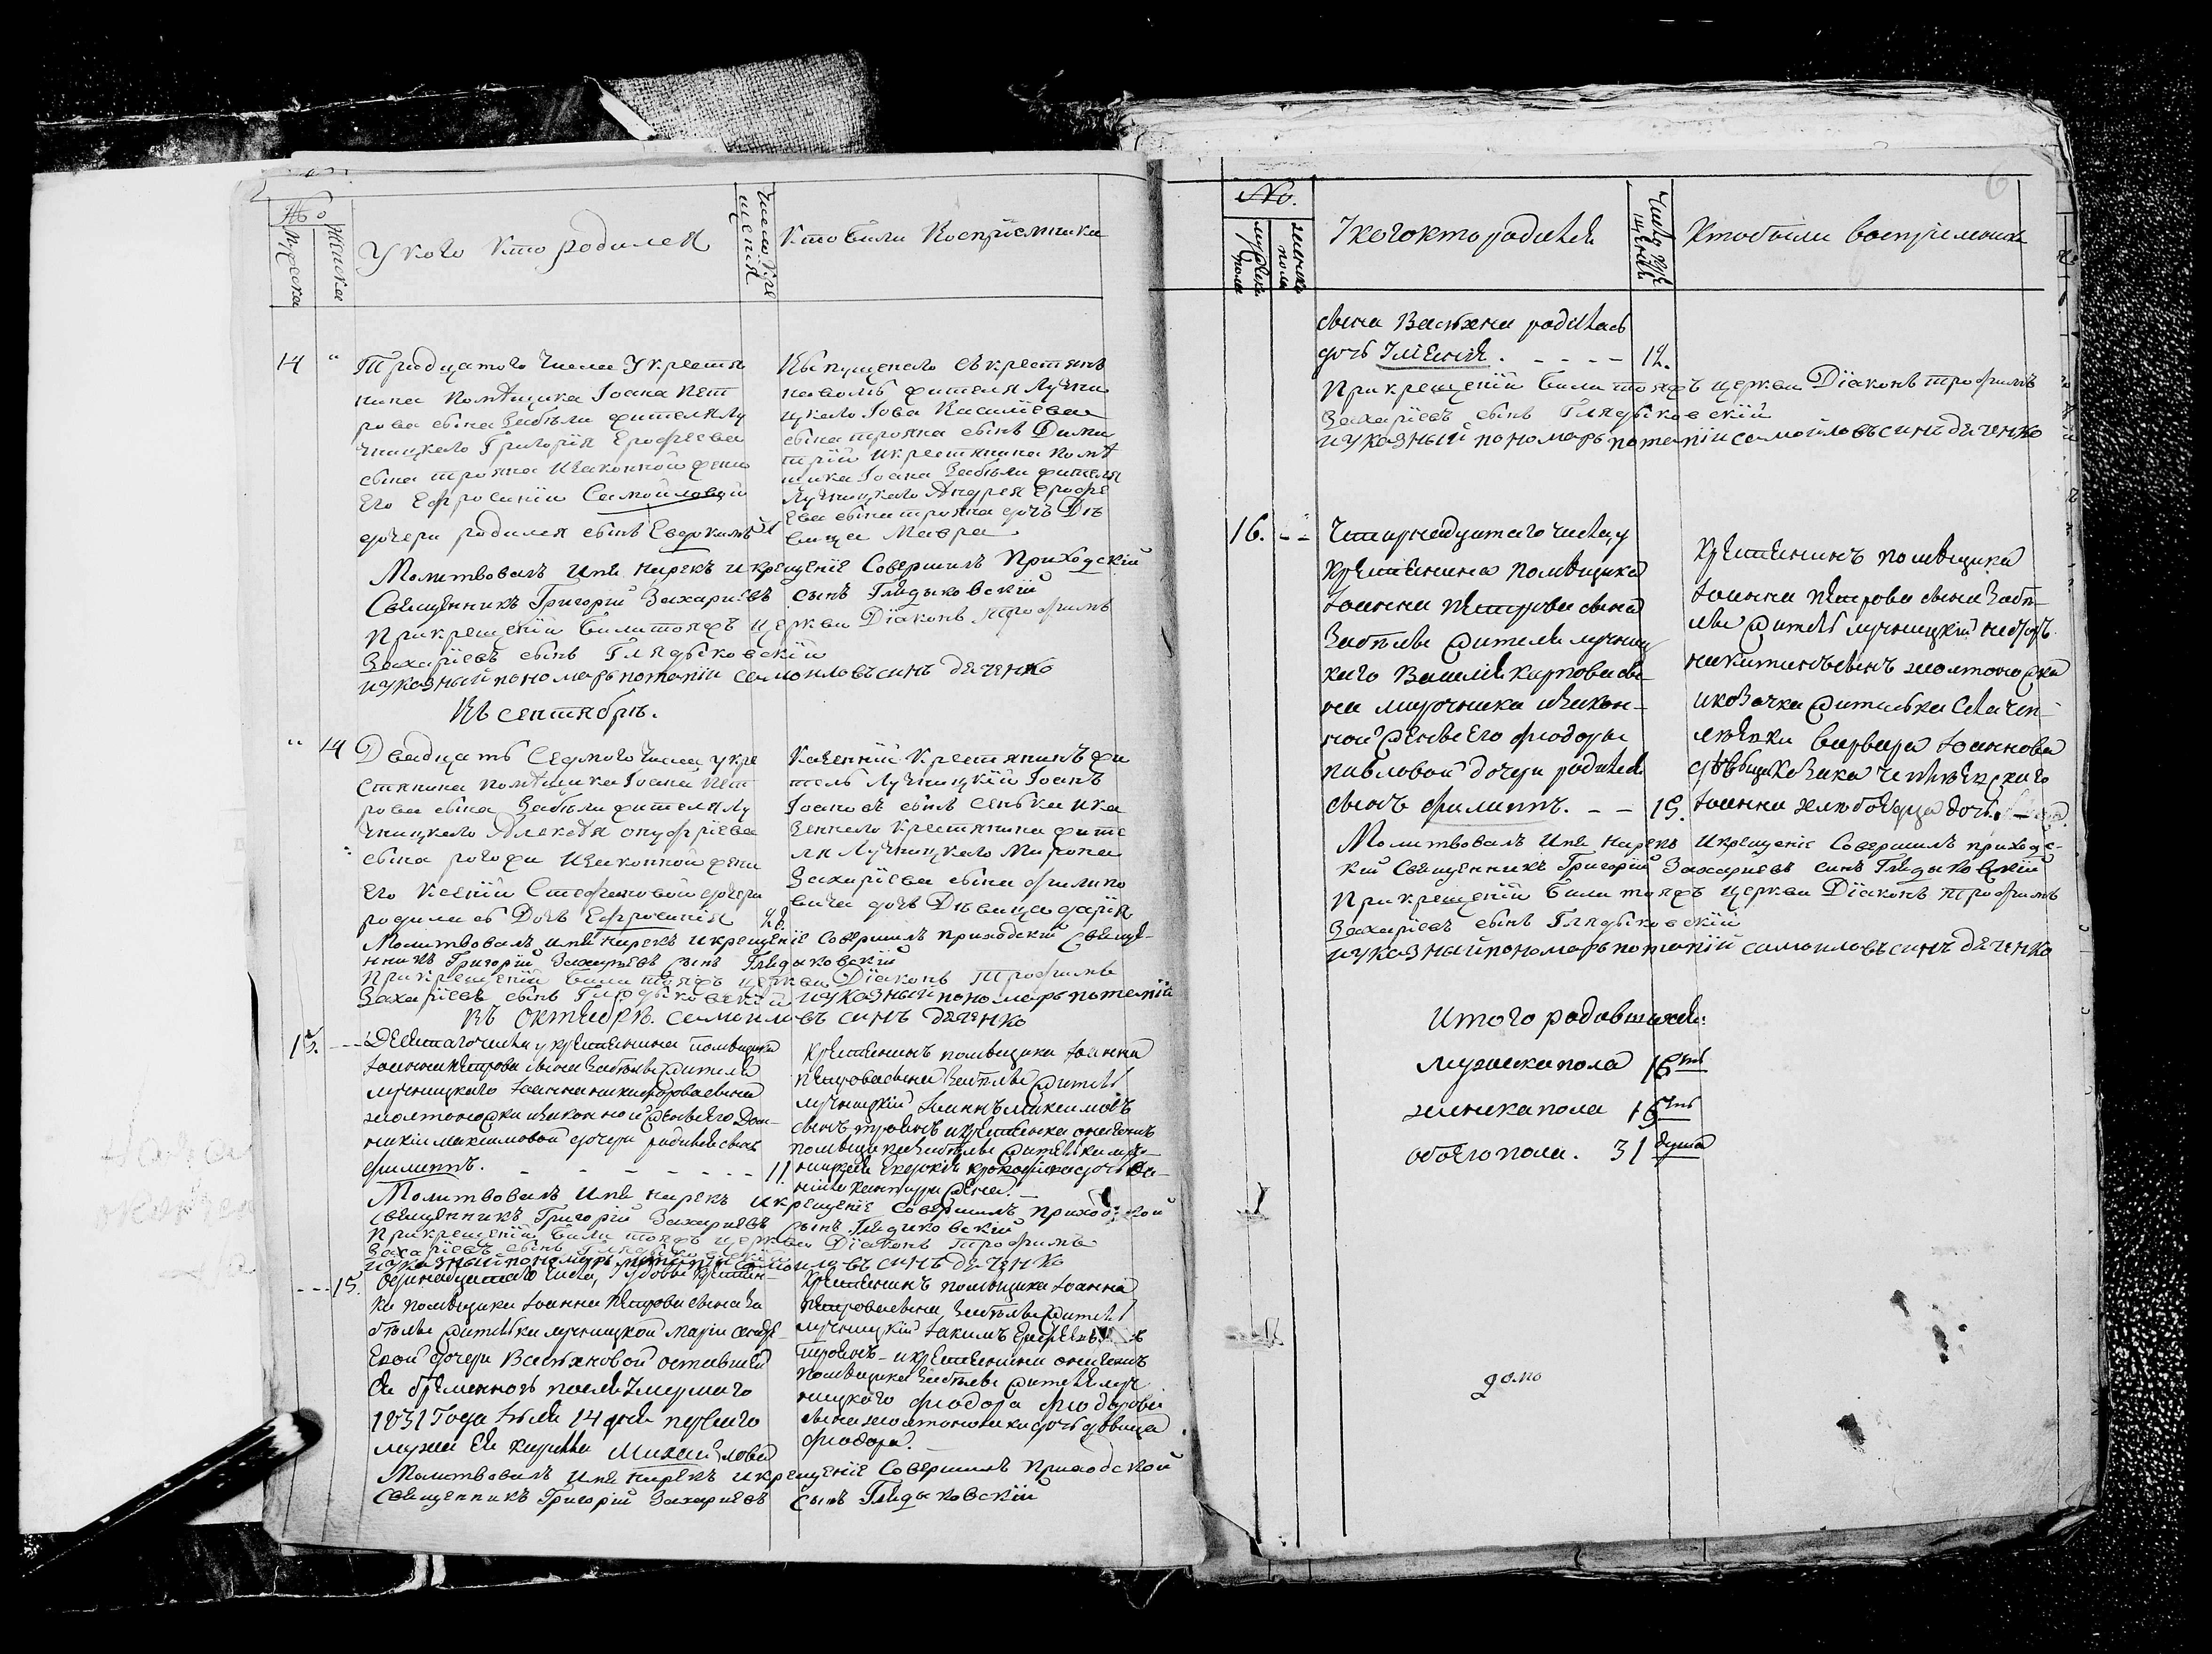 №
Мужеска
Женска
У кого кто родился
Число крещенія
Кто були Воспріемники
14 "
Тридцатого Числа У крестя
нина Помѣщика Іоана Пет
рова сына Забѣлы жителя Лу
чницкаго Григорія Ерофеева
сына трояна изаконной жены
Его Ефросиніи Самойловой
дочери родился сынъ Евдокимъ 31
Випущеного съ крестянъ
наволю жителя Лучни
цкаго Іова Василіева
сына трояна сынъ Дими
трій икрестянина помѣ
щика Іоана Забѣлы жителя
Лучницкаго Андрея Ерофе
Ева сына трояна дочь Дѣ
вица Мавра
Молитвовалъ Имя нарекъ и крещеніе Совершилъ Приходскій
Священникъ Григорій Захаріевъ сынъ Глядыковскій
При крещеніи были тояжъ церкви Діаконъ Трофимъ
Захаріевъ сынъ Глядыковскій
и указный пономарь потапій самоиловъ синъ дяченко
Въ сентябрѣ.
" 14
Двадцать Седмого Числа укре
стянина помѣщика Іоана Пет
рова сына Забѣлы жителя Лу
чницкаго Алексѣя онуфріева
сына рогожи Изаконной жены
Его Ксеніи Стефановой дочери
родилась Дочь Ефросинія 28.
Казенній Крестянинъ жи
тель Лучницкій Іоанъ
Іоановъ сынъ Сенька ика
зенного Крестянина жите
ля Лучницкаго Мирона
Захаріева сына филипо
вича дочь Дѣвица дарія
Молитвовалъ имя нарекъ и крещеніе совершилъ приходскій Свяще-
нникъ Григорій Захаріевъ сынъ Глядыковскій
При крещеніи были тояжъ церкви Діаконъ Трофимъ
Захаріевъ сынъ Глядыковскій и указный пономарь потапій
Въ октябрѣ. самоиловъ синъ дяченко
15. ---
Десятагочисла у крестянина помѣщика
Іоаннапетрова сына Забѣлы жителя
лучницкаго Іоанна никифорова сына
золтоножки изаконной жены Его Дом-
никіи максимовой дочери родился сынъ
филиппъ. - - - - - - - 11.
Крестянинъ помѣщика Іоанна
Петровасына Забѣлы житель
лучницкій Іоаннъ максимовъ
сынъ троянъ икрестянка
помѣщика Забѣлы жителька луч-
ницкая
жена.
Молитвовалъ Имя нарекъ и крещеніе Совершилъ приходской
Священникъ Григорій Захаріевъ сынъ Глядиковскій
При крещеніи были тояжъ церкви Діаконъ Трофимъ
Захаріевъ сынъ Глядыковскій
и указный пономарь потапій самоиловъ синъ дяченко
--- 15.
Одинадцатаго числа, У вдовы крестян-
ки помѣщика Іоанна Петрова сына За
бѣлы жительки лучницкой Маріи Андре-
Евой дочери Василхновой оставшей
ся беременною послѣ Умершаго
1831 Года Іюля 14 дня перваго
мужа Ея кирилла Михайлова
Крестянинъ помѣщика Іоанна
Петровасына, Забѣлы житель
лучницкій Іакимъ
троянъ - икрестянина
помѣщика Забѣлы жителя луч
ницкаго феодора феодорова
сына золтоножки дочь дѣвица
феодора.
Молитвовалъ Имя нарекъ и крещеніе Совершилъ Приходской
Священникъ Григорій Захаріевъ сынъ Глядыковскій
6
№.
мужска пола
женска пола
У кого кто родился
Число крещенія
Кто были воспріемники
сына Василхна родилась
дочь Іуліанія. - - - - 12.
При крещеніи были тояжъ церкви Діаконъ трофимъ
Захаріевъ сынъ Глядыковскій
и указный пономарь потапій самойловъ синъ дяченко
16. --
Четырнадцатаго числа, у
крестянина помѣщика
Іоанна петрова сына
Забѣлы жителя лучниц
каго Василія карпова сы-
на мирочника изакон-
ной жены Его феодоры
павловой дочери родился
сынъ филиппъ. - - 15.
Крестянинъ помѣщика
Іоанна петрова сына Забѣ-
лы житель лучницкій
никитинъ сынъ золтоножка
икозачка жителька
Варвара Іоаннова
Іоанна дочь.
Молитвовалъ Имя нарекъ и крещеніе Совершилъ приходс-
кій Священникъ Григорій Захаріевъ синъ Глядыковскій
При крещеніи были тояжъ церкви Діаконъ трофимъ
Захаріевъ сынъ Глядыковскій
и указный пономарь потапій самоиловъ синъ дяченко
Итого родившихся:
мужеска пола 16ть
женска пола 15ть
обоего пола. 31 душа